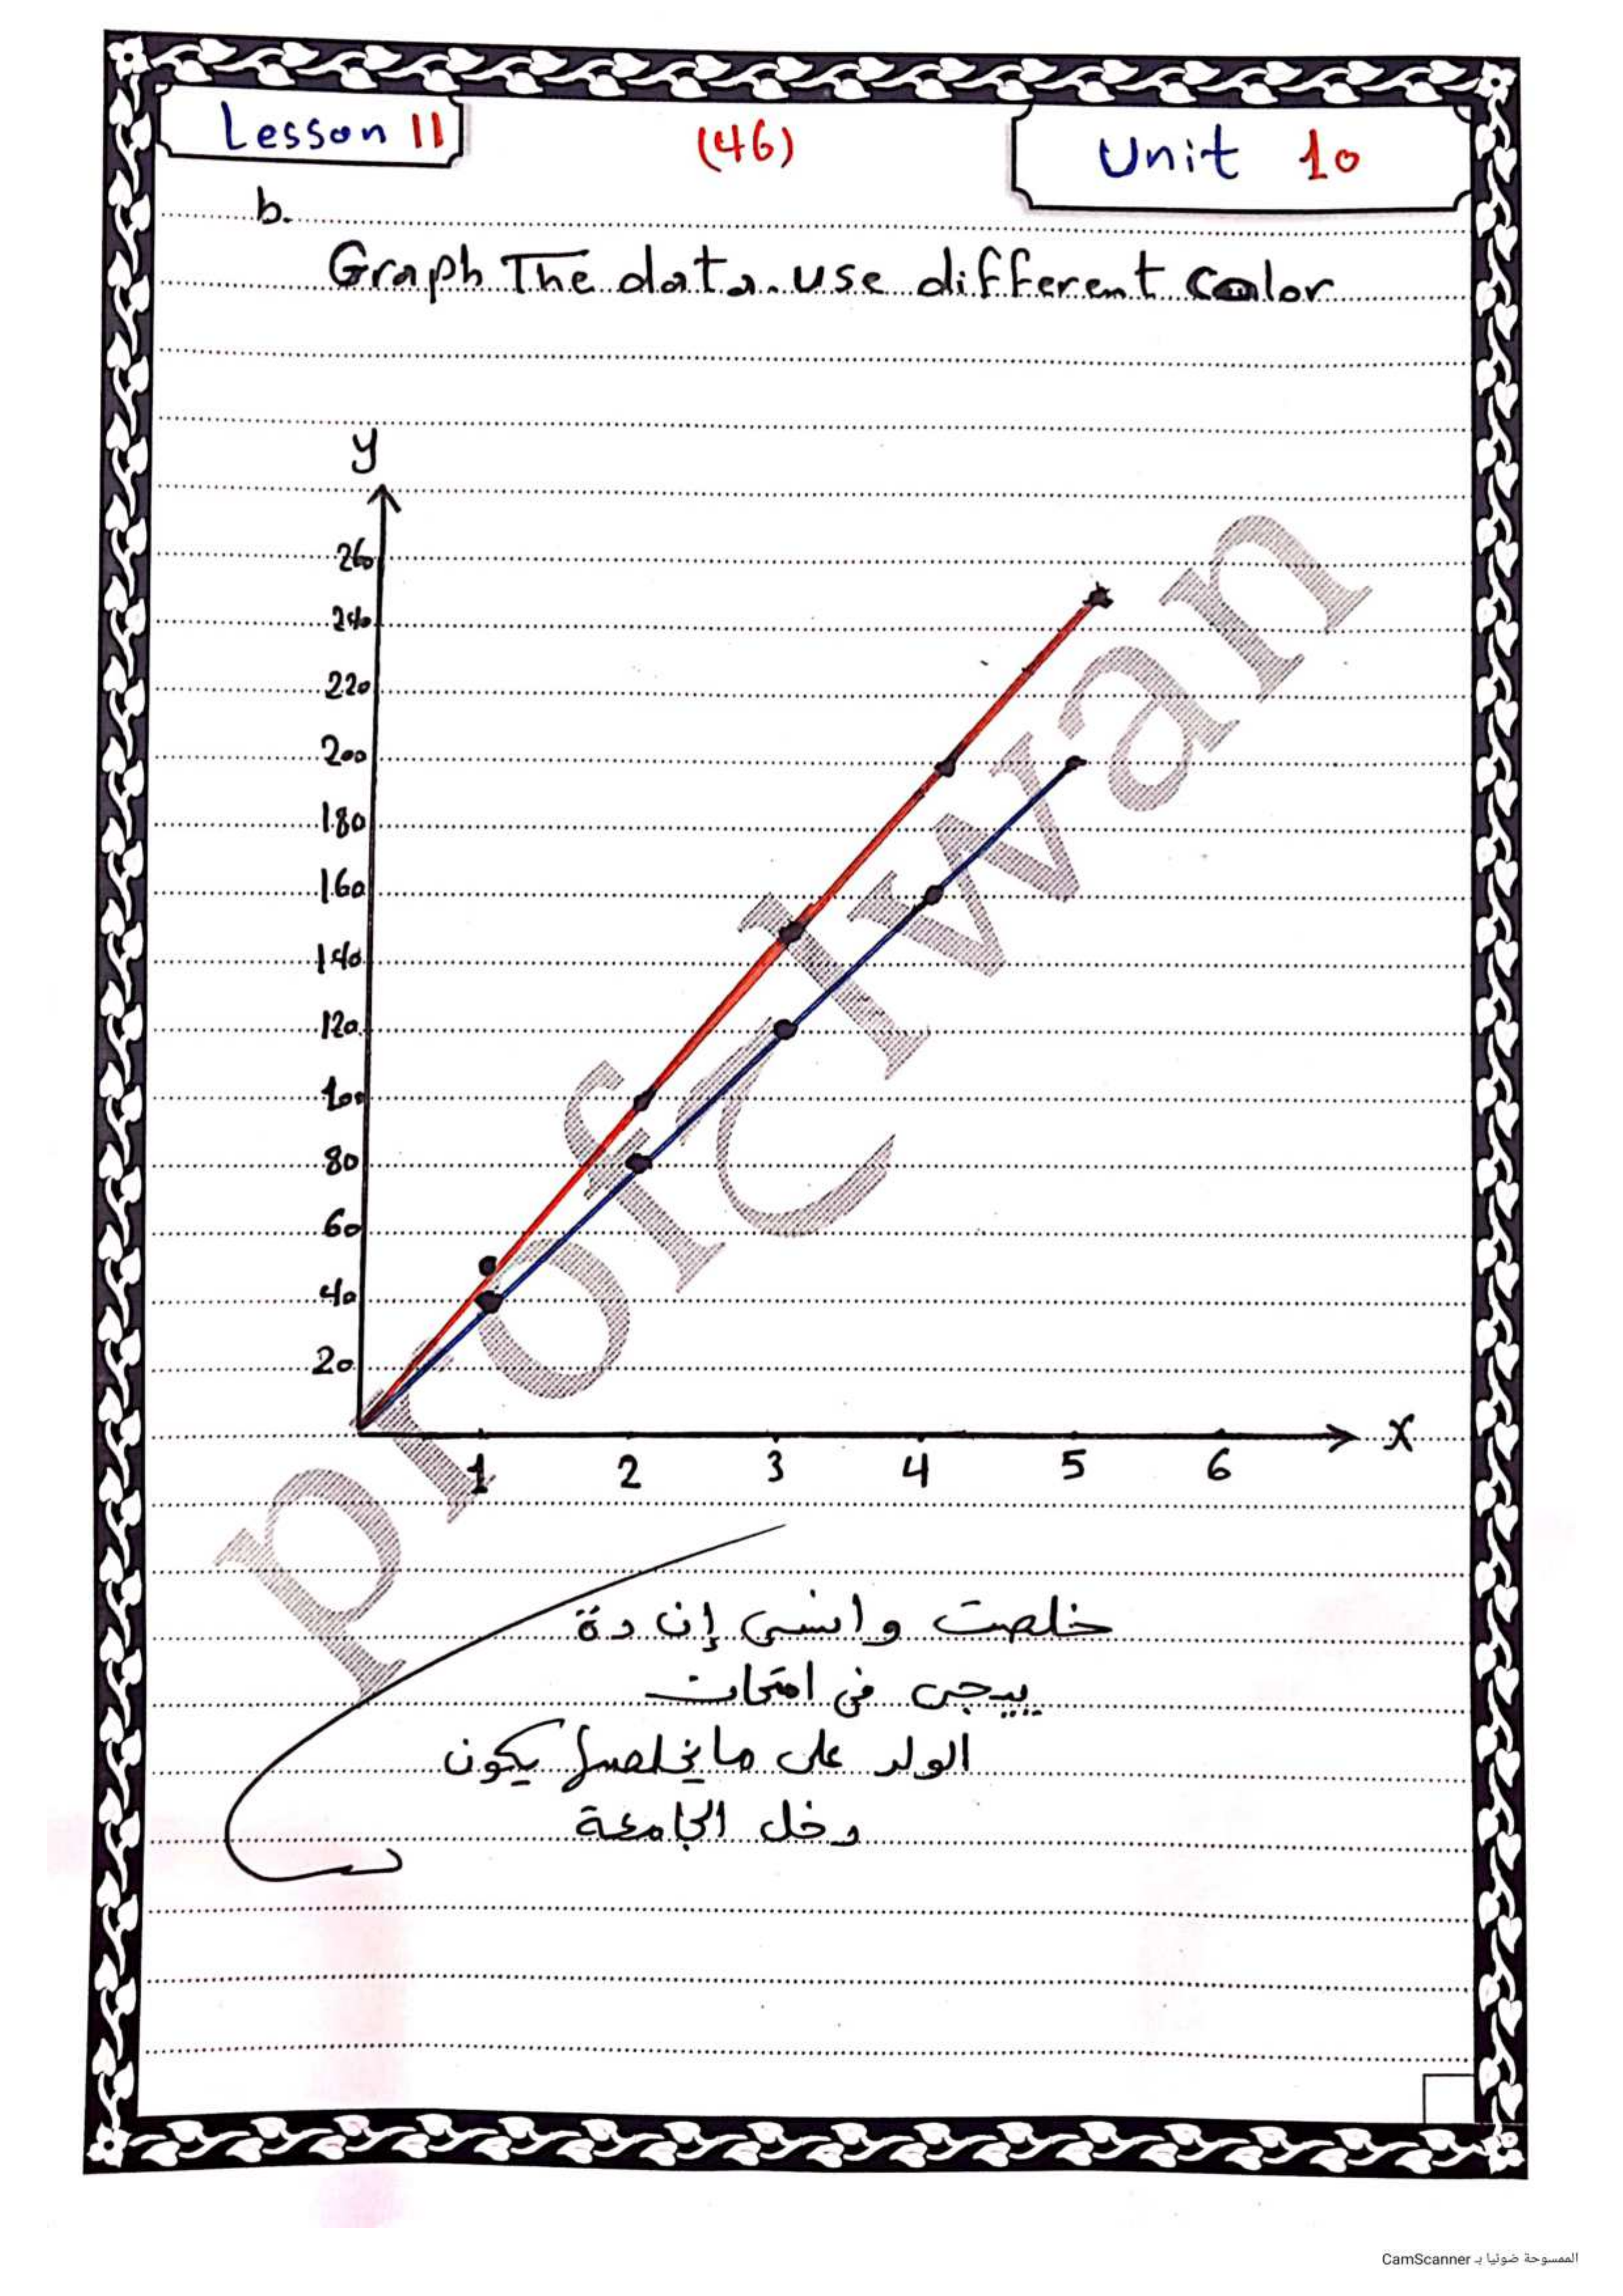 Lesson 11
(46)
Unit 10
b.
Graph The data. use different color
y
260
240
220
200
180
160
140
120
100
80
60
40
20
x
1 2 3 4 5 6
prof Clwan
خلصت وانسى إن دة
ييجى فى امتحان
الولد على مايخلصها يكون
دخل الجامعة
الممسوحة ضوئيا بـ CamScanner